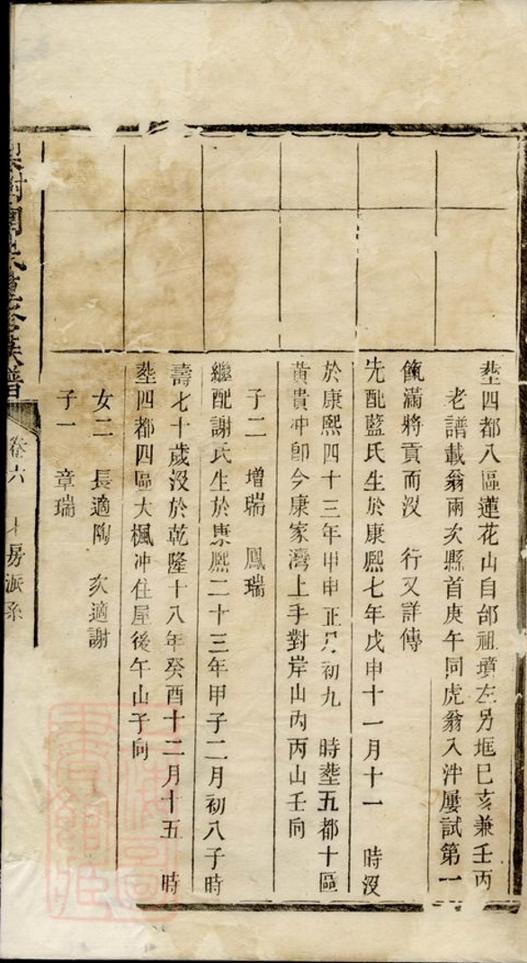 塟四都八區蓮花山自邰祖墳左另堆巳亥兼壬丙
老譜載翁兩次縣首庚午同虎翁入泮屢試第一
餼滿將貢而沒　行又詳傳
先配藍氏生於康熙七年戊申十一月十一　時沒
於康熙四十三年甲申正月初九　時塟五都十區
黃貴冲卽今康家灣上手對岸山內丙山壬向
子二　增瑞　鳳瑞
繼配謝氏生於康熙二十三年甲子二月初八子時
壽七十歲沒於乾隆十八年癸酉十二月十五　時
塟四都四區大楓冲住屋後午山子向
女二　長適陶　次適謝
子一　章瑞
氏 修族譜
卷六
房派系